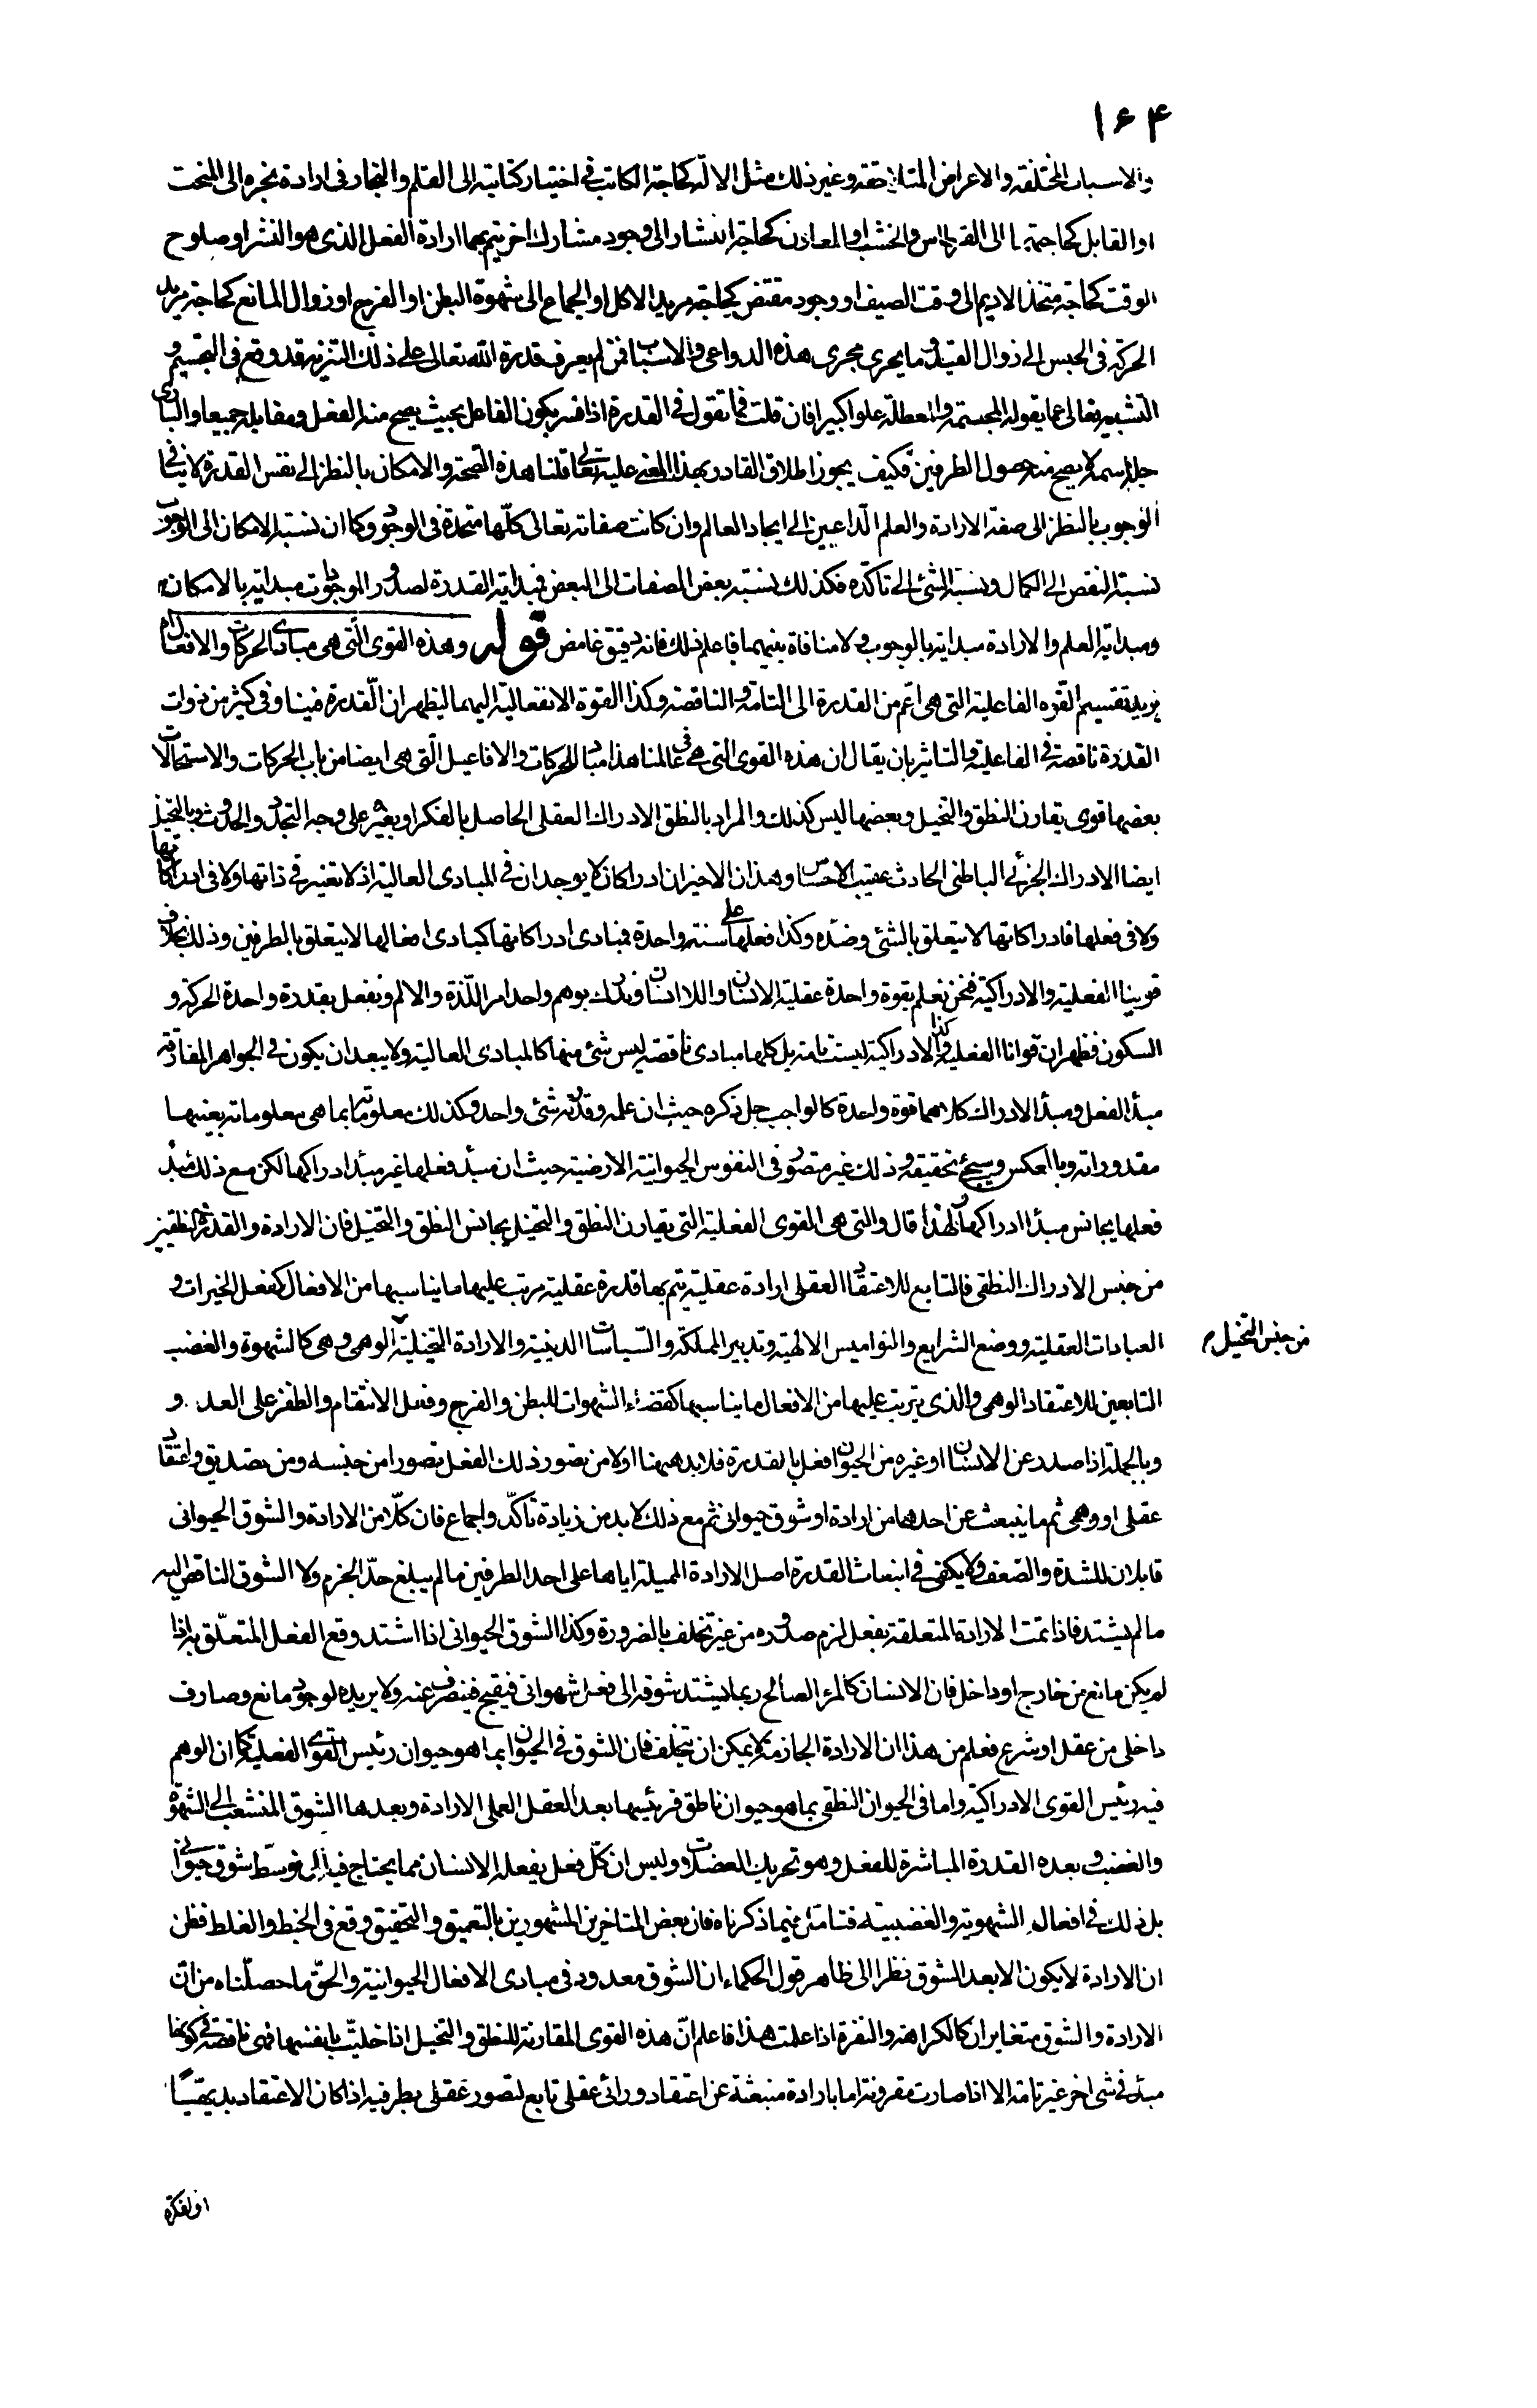 ۱۶۴
والاسباب المختلفه والاعراض المتلاحقه وغير ذلك مثل الالة كحاجة الكاتب فى اختيار كتابته الى القلم والنجار فى ارادة نجره الى المنحت
او القابل كحاجتهما الى القرطاس والخشب او المعاون كحاجة النشار الى وجود مشارك اخر يتم بهما ارادة الفعل الذى هو النشر او صلوح
الوقت كحاجة متخذ الاديم الى وقت الصيف او وجود مقتض كحاجة مريد الاكل او الجماع الى شهوة البطن او الفرج او زوال المانع كحاجة مريد
الحركة فى الحبس الى زوال القيد وما يجرى مجرى هذه الدواعى والاسباب فمن لم يعرف قدرة الله تعالى على ذلك التنزيه فقد وقع فى التجسيم و
التشبيه تعالى عما يقوله المجسمة والمعطلة علوا كبيرا فان قلت فما تقول فى القدرة اذا فسر بكون الفاعل بحيث يصح منه الفعل ومقابله جميعا والبارى
جل اسمه لا يصح منه حصول الطرفين فكيف يجوز اطلاق القادر بهذا المعنى عليه تعالى قلنا هذه الصحة والامكان بالنظر الى نفس القدرة لا ينافى
الوجوب بالنظر الى صفة الارادة والعلم الداعيين الى ايجاد العالم وان كانت صفاته تعالى كلّها متحدة فى الوجود وكما ان نسبة الامكان الى الوجوب
نسبة النقص الى الكمال ونسبة الشئ الى تاكّده فكذلك نسبة بعض الصفات الى البعض فمبدائية القدرة لصدور الموجودات مبدائية بالامكان
ومبدائية العلم والارادة مبدائية بالوجوب ولا منافاة بينهما فاعلم ذلك فانه دقيق غامض قوله وهذه القوى الّتى هى مبادى الحركات والافعال اه
يريد تقسيم القوّه الفاعلية التى هى اعّم من القدرة الى التامة والناقصة وكذا القوة الانفعالية اليهما ليظهر ان القدرة فينا وفى كثير من ذوات
القدرة ناقصة فى الفاعلية والتاثير بان يقال ان هذه القوى التى هى فى عالمنا هذا مباد للحركات والافاعيل الّتى هى ايضا من باب الحركات والاستحالات
بعضها قوى يقارن النطق والتخيل وبعضها ليس كذلك والمراد بالنطق الادراك العقلى الحاصل بالفكر او بغيره على وجه التجدد والحدوث وبالتخيل
ايضا الادراك الجزئى الباطنى الحادث عقيب الاحساس وهذان الاخيران ادراكان لا يوجدان فى المبادى العالية اذ لا تغير فى ذاتها ولا فى ادراكاتها
ولا فى فعلها فادراكاتها لا يتعلق بالشئ وضدّه وكذا فعلها على سنة واحدة فمبادى ادراكاتها كمبادى افعالها لا يتعلق بالطرفين وذلك بخلاف
قوينا الفعلية والادراكية فنحن نعلم بقوة واحدة عقلية الانسان واللاانسان وندرك بوهم واحد امر اللّذة والالم ونفعل بقدرة واحدة الحركة و
السكون فظهر ان قوانا الفعلية وكذا الادراكية ليست تامة بل كلها مبادى ناقصة ليس شئ منها كالمبادى العالية ولا يبعد ان يكون فى الجواهر المفارقة
مبدأ الفعل ومبدأ الادراك كلاهما قوة واحدة كالواجب جل ذكره حيث ان علمه وقدرته شئ واحد وكذلك معلوماته بما هى معلوماته بعينها
مقدوراته وبالعكس وسيجئ تحقيقه وذلك غير متصور فى النفوس الحيوانية الارضية حيث ان مبدأ فعلها غير مبدأ ادراكها لكن مع ذلك مبدأ
فعلها يجانس مبدأ ادراكها ولهذا قال والتى هى القوى الفعلية التى يقارن النطق والتخيل يجانس النطق والتخيل فان الارادة والقدرة النطقيتين
من جنس الادراك النطقى فالتابع للاعتقاد العقلى ارادة عقلية يتم بها قدرة عقلية مرتب عليها ما يناسبها من الافعال كفعل الخيرات و
العبادات العقلية ووضع الشرايع والنواميس الالهية وتدبير المملكة والسّياسات الدينية والارادة التخيلية الوهمى وهى كالشهوة والغضب
من جنس التخيل م
التابعين للاعتقاد الوهمى والذى يترتب عليها من الافعال ما يناسبها كقضاء الشهوات للبطن والفرج وفعل الانتقام والظفر على العدو
وبالجملة اذا صدر عن الانسان او غيره من الحيوان فعل بالقدرة فلا بد هيهنا اولا من تصور ذلك الفعل تصورا من جنسه ومن تصديق واعتقاد
عقلى او وهمى ثم ما ينبعث عن احدهما من ارادة او شوق حيوانى ثم مع ذلك لا بد من زيادة تاكّد واجماع فان كلّا من الارادة والشوق الحيوانى
قابلان للشدة والضعف ولا يكفى فى انبعاث القدرة اصل الارادة المميلة اياها على احد الطرفين ما لم يبلغ حدّ الجزم ولا الشوق الناقص اليه
ما لم يشتد فاذا تمت الارادة المتعلقة بفعل لزم صدوره من غير تخلف بالضرورة وكذا الشوق الحيوانى اذا اشتد وقع الفعل المتعلّق به اذا
لم يكن مانع من خارج او داخل فان الانسان كالمرء الصالح ربما يشتد شوقه الى فعل شهوانى قبيح فينصرف عنه ولا يريده لوجود مانع وصارف
داخلى من عقل او شرع فعلم من هذا ان الارادة الجازمة لا يمكن ان يتخلف فان الشوق فى الحيوان بما هو حيوان رئيس القوى الفعلية كما ان الوهم
فيه رئيس القوى الادراكية واما فى الحيوان النطقى بما هو حيوان ناطق فرئيسها بعد العقل العملى الارادة وبعدها الشوق المنشعب الى الشهوة
والغضب وبعده القدرة المباشرة للفعل وهو تحريك العضلات وليس ان كلّ فعل يفعله الانسان مما يحتاج فيه الى توسّط شوق حيوانى
بل ذلك فى افعاله الشهوية والغضبية فتامّل فيما ذكرناه فان بعض المتاخرين المشهورين بالتعميق والتحقيق وقع فى الخبط والغلط فظن
ان الارادة لا يكون الا بعد الشوق نظرا الى ظاهر قول الحكماء ان الشوق معدود فى مبادى الافعال الحيوانية والحقّ ما حصلّناه من انّ
الارادة والشوق متغايران كالكراهة والنفرة اذا علمت هذا فاعلم انّ هذه القوى المقارنة للنطق والتخيل اذا خليّت بانفسها فهى ناقصة فى كونها
مبدأ فى شئ اخر غير تامة الا اذا صارت مقرونة اما بارادة منبعثة عن اعتقاد ورائ عقلى تابع لتصور عقلى بطرفيه اذا كان الاعتقاد بديهيّا
او لفكرة